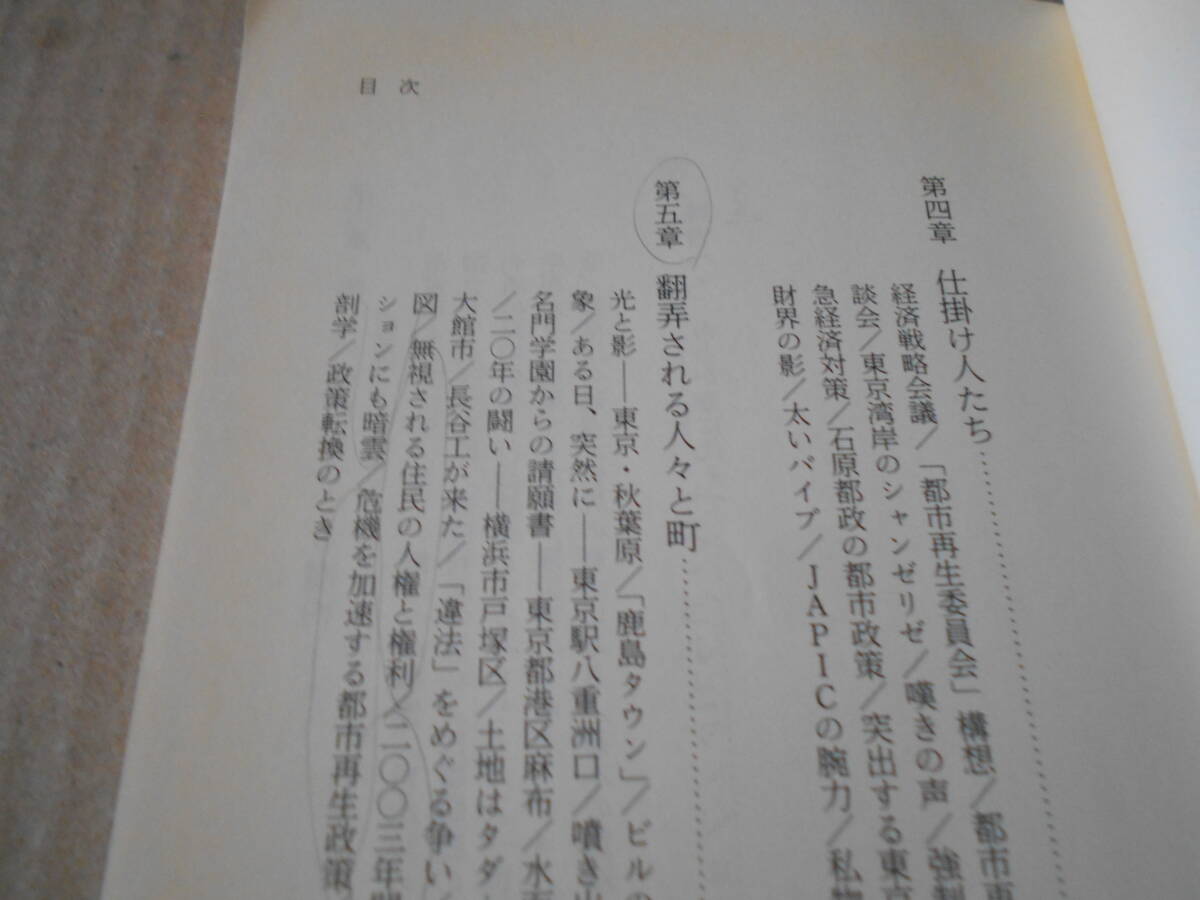 目次
第四章 仕掛け人たち……………
経済戦略会議／「都市再生委員会」構想／都市再
談会／東京湾岸のシャンゼリゼ／嘆きの声／強制
急経済対策／石原都政の都市政策／突出する東京
財界の影／太いパイプ／JAPICの腕力／私物
第五章 翻弄される人々と町……………
光と影──東京・秋葉原／「鹿島タウン」／ビルの
象／ある日、突然に──東京駅八重洲口／噴き出
名門学園からの請願書──東京都港区麻布／水面
／二〇年の闘い──横浜市戸塚区／土地はタダ
大館市／長谷工が来た／「違法」をめぐる争い／
図／無視される住民の人権と権利／二〇〇三年問
ションにも暗雲／危機を加速する都市再生政策
剖学／政策転換のとき